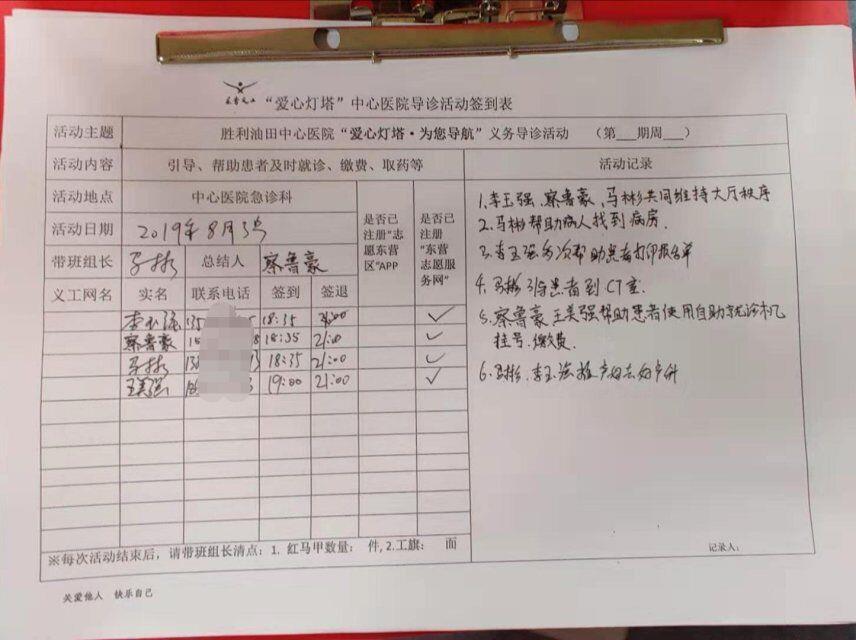 “爱心灯塔”中心医院导诊活动签到表
活动主题 胜利油田中心医院“爱心灯塔·为您导航”义务导诊活动 （第___期周___）
活动内容 引导、帮助患者及时就诊、缴费、取药等 活动记录
活动地点 中心医院急诊科
活动日期 2019年8月3号
带班组长 马彬 总结人 蔡鲁豪
是否已注册“志愿东营区”APP
是否已注册“东营志愿服务网”
义工网名 实名 联系电话 签到 签退
李玉强 135 18:35 21:00 ✓
蔡鲁豪 18:35 21:00 ✓
马彬 18:35 21:00 ✓
王美强 19:00 21:00 ✓
1.李玉强、蔡鲁豪、马彬共同维持大厅秩序
2.马彬帮助病人找到病房.
3.李玉强多次帮助患者打印报告单
4.马彬引导患者到CT室.
5.蔡鲁豪王美强帮助患者使用自助就诊机
挂号.缴费.
6.马彬.李玉强推
※每次活动结束后，请带班组长清点：1. 红马甲数量： 件, 2.工旗： 面
记录人：
关爱他人 快乐自己